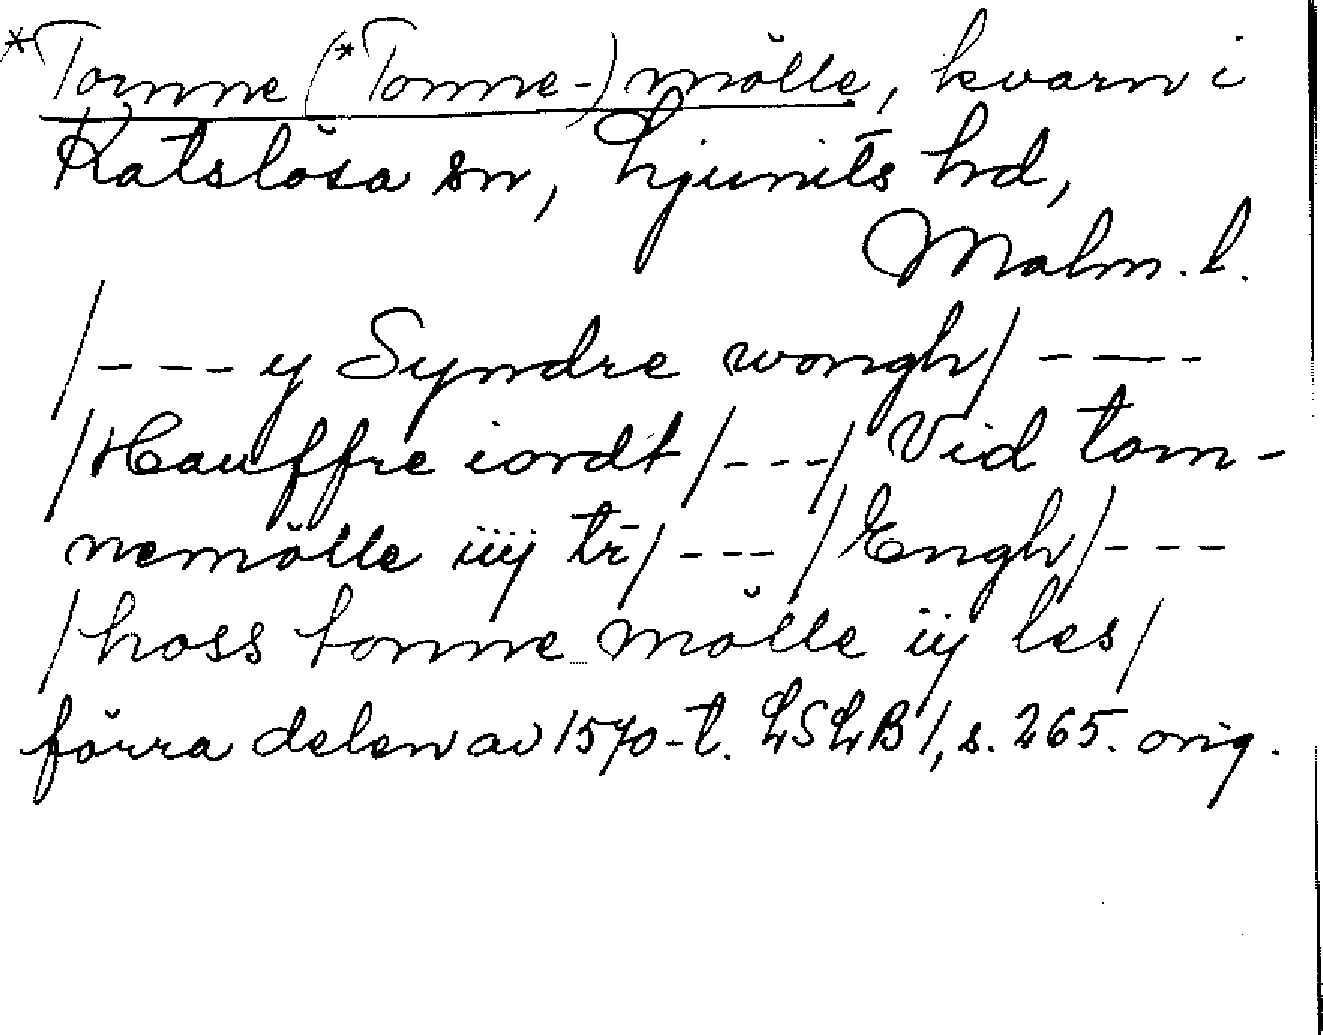 *Tomme (*Tonne-) mölle, kvarn i
Katslösa sn, Ljunits hd,
Malm. l.
/---- y Syndre wongh/ ----
/Hauffre iordt /---/ Vid tom-
nemölle iiij tr̄/---/Engh/---
/hoss tonne mölle iij les/
förra delen av 1570-t. LSLB 1, s. 265. orig.